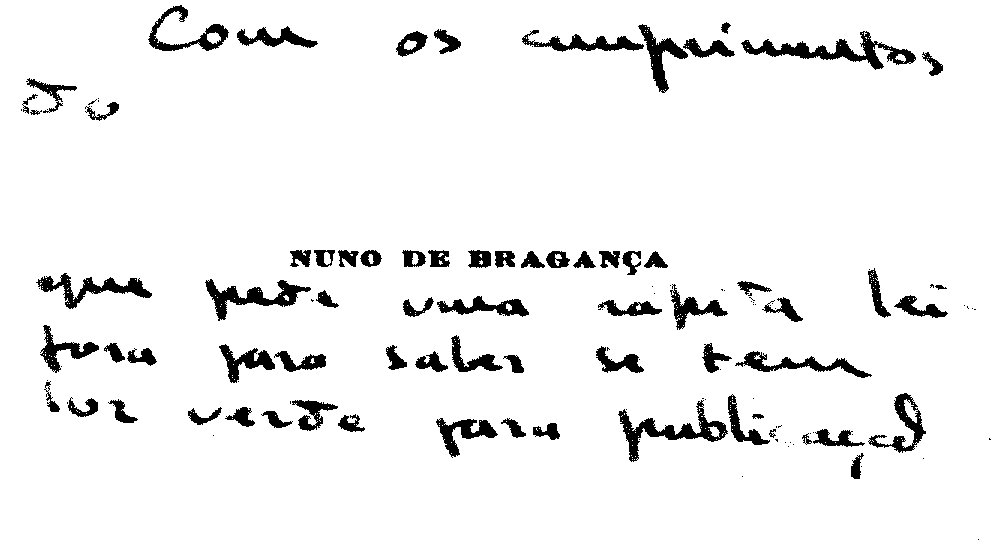 Com os cumprimentos
do
NUNO DE BRAGANÇA
que pede uma rapida lei
tura para saber se tem
luz verde para publicação